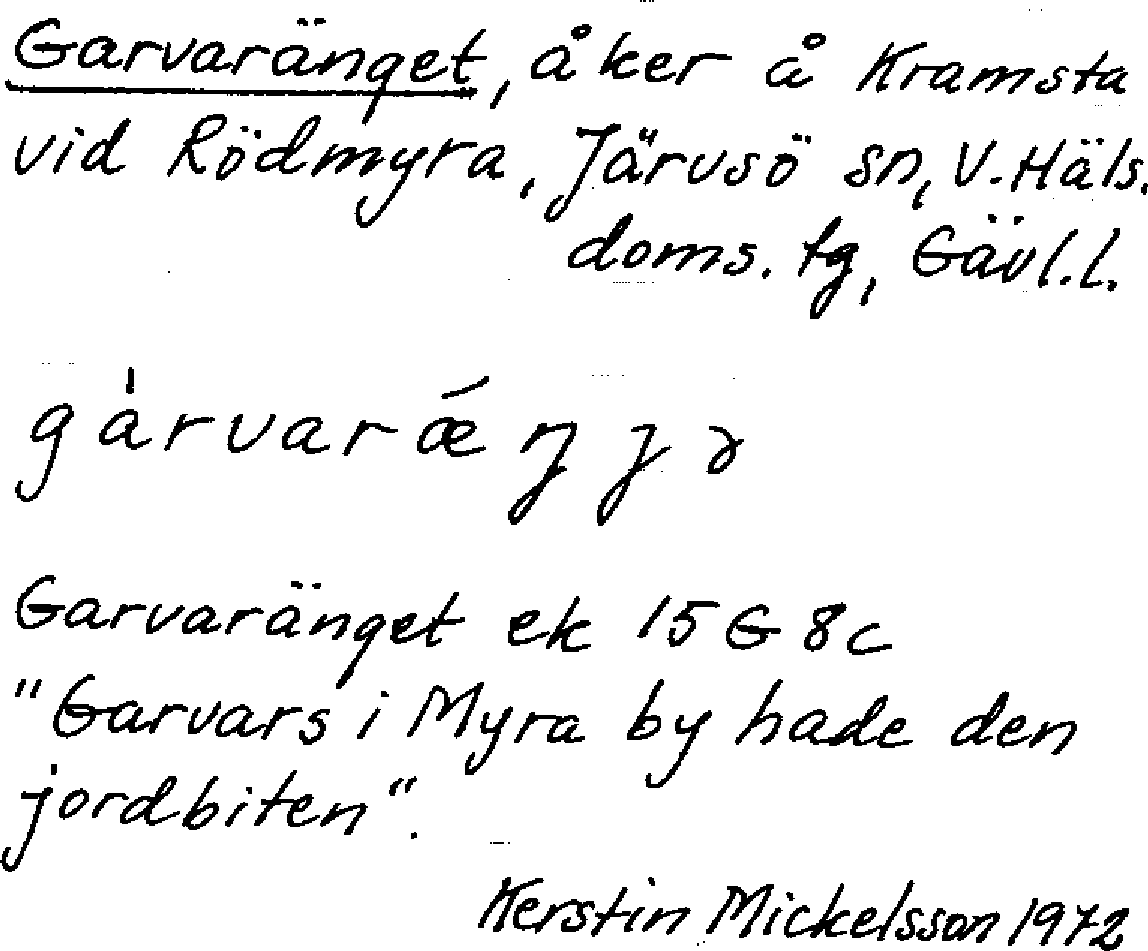 Garvaränget, åker å Kramsta
vid Rödmyra, Järvsö sn, V. Häls.
doms. tg, Gävl. l.
gàrvarǽŋŋə
Garvaränget ek 15 G 8c
"Garvars i Myra by hade den
jordbiten".
Kerstin Mickelsson 1972